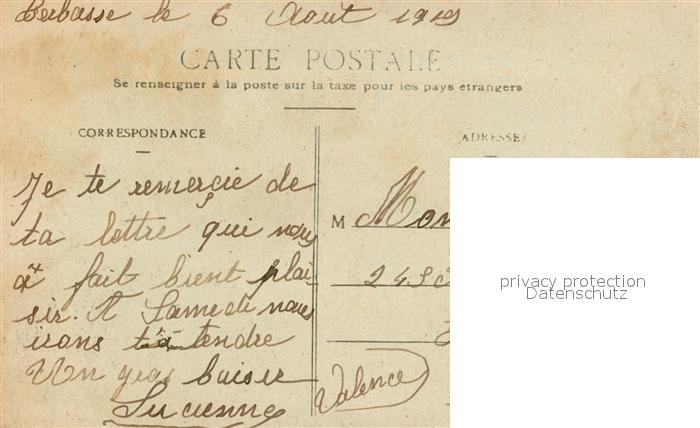 le 6 Aout 1919
CARTE POSTALE
Se renseigner à la poste sur la taxe pour les pays étrangers
CORRESPONDANCE
ADRESSE
Je te remerçie de
ta lettre qui nous
à fait bient plai-
sir. A Samedi nous
irons t'a tendre
Un gros baiser
Lucienne
M Mon
245
Valence
privacy protection
Datenschutz